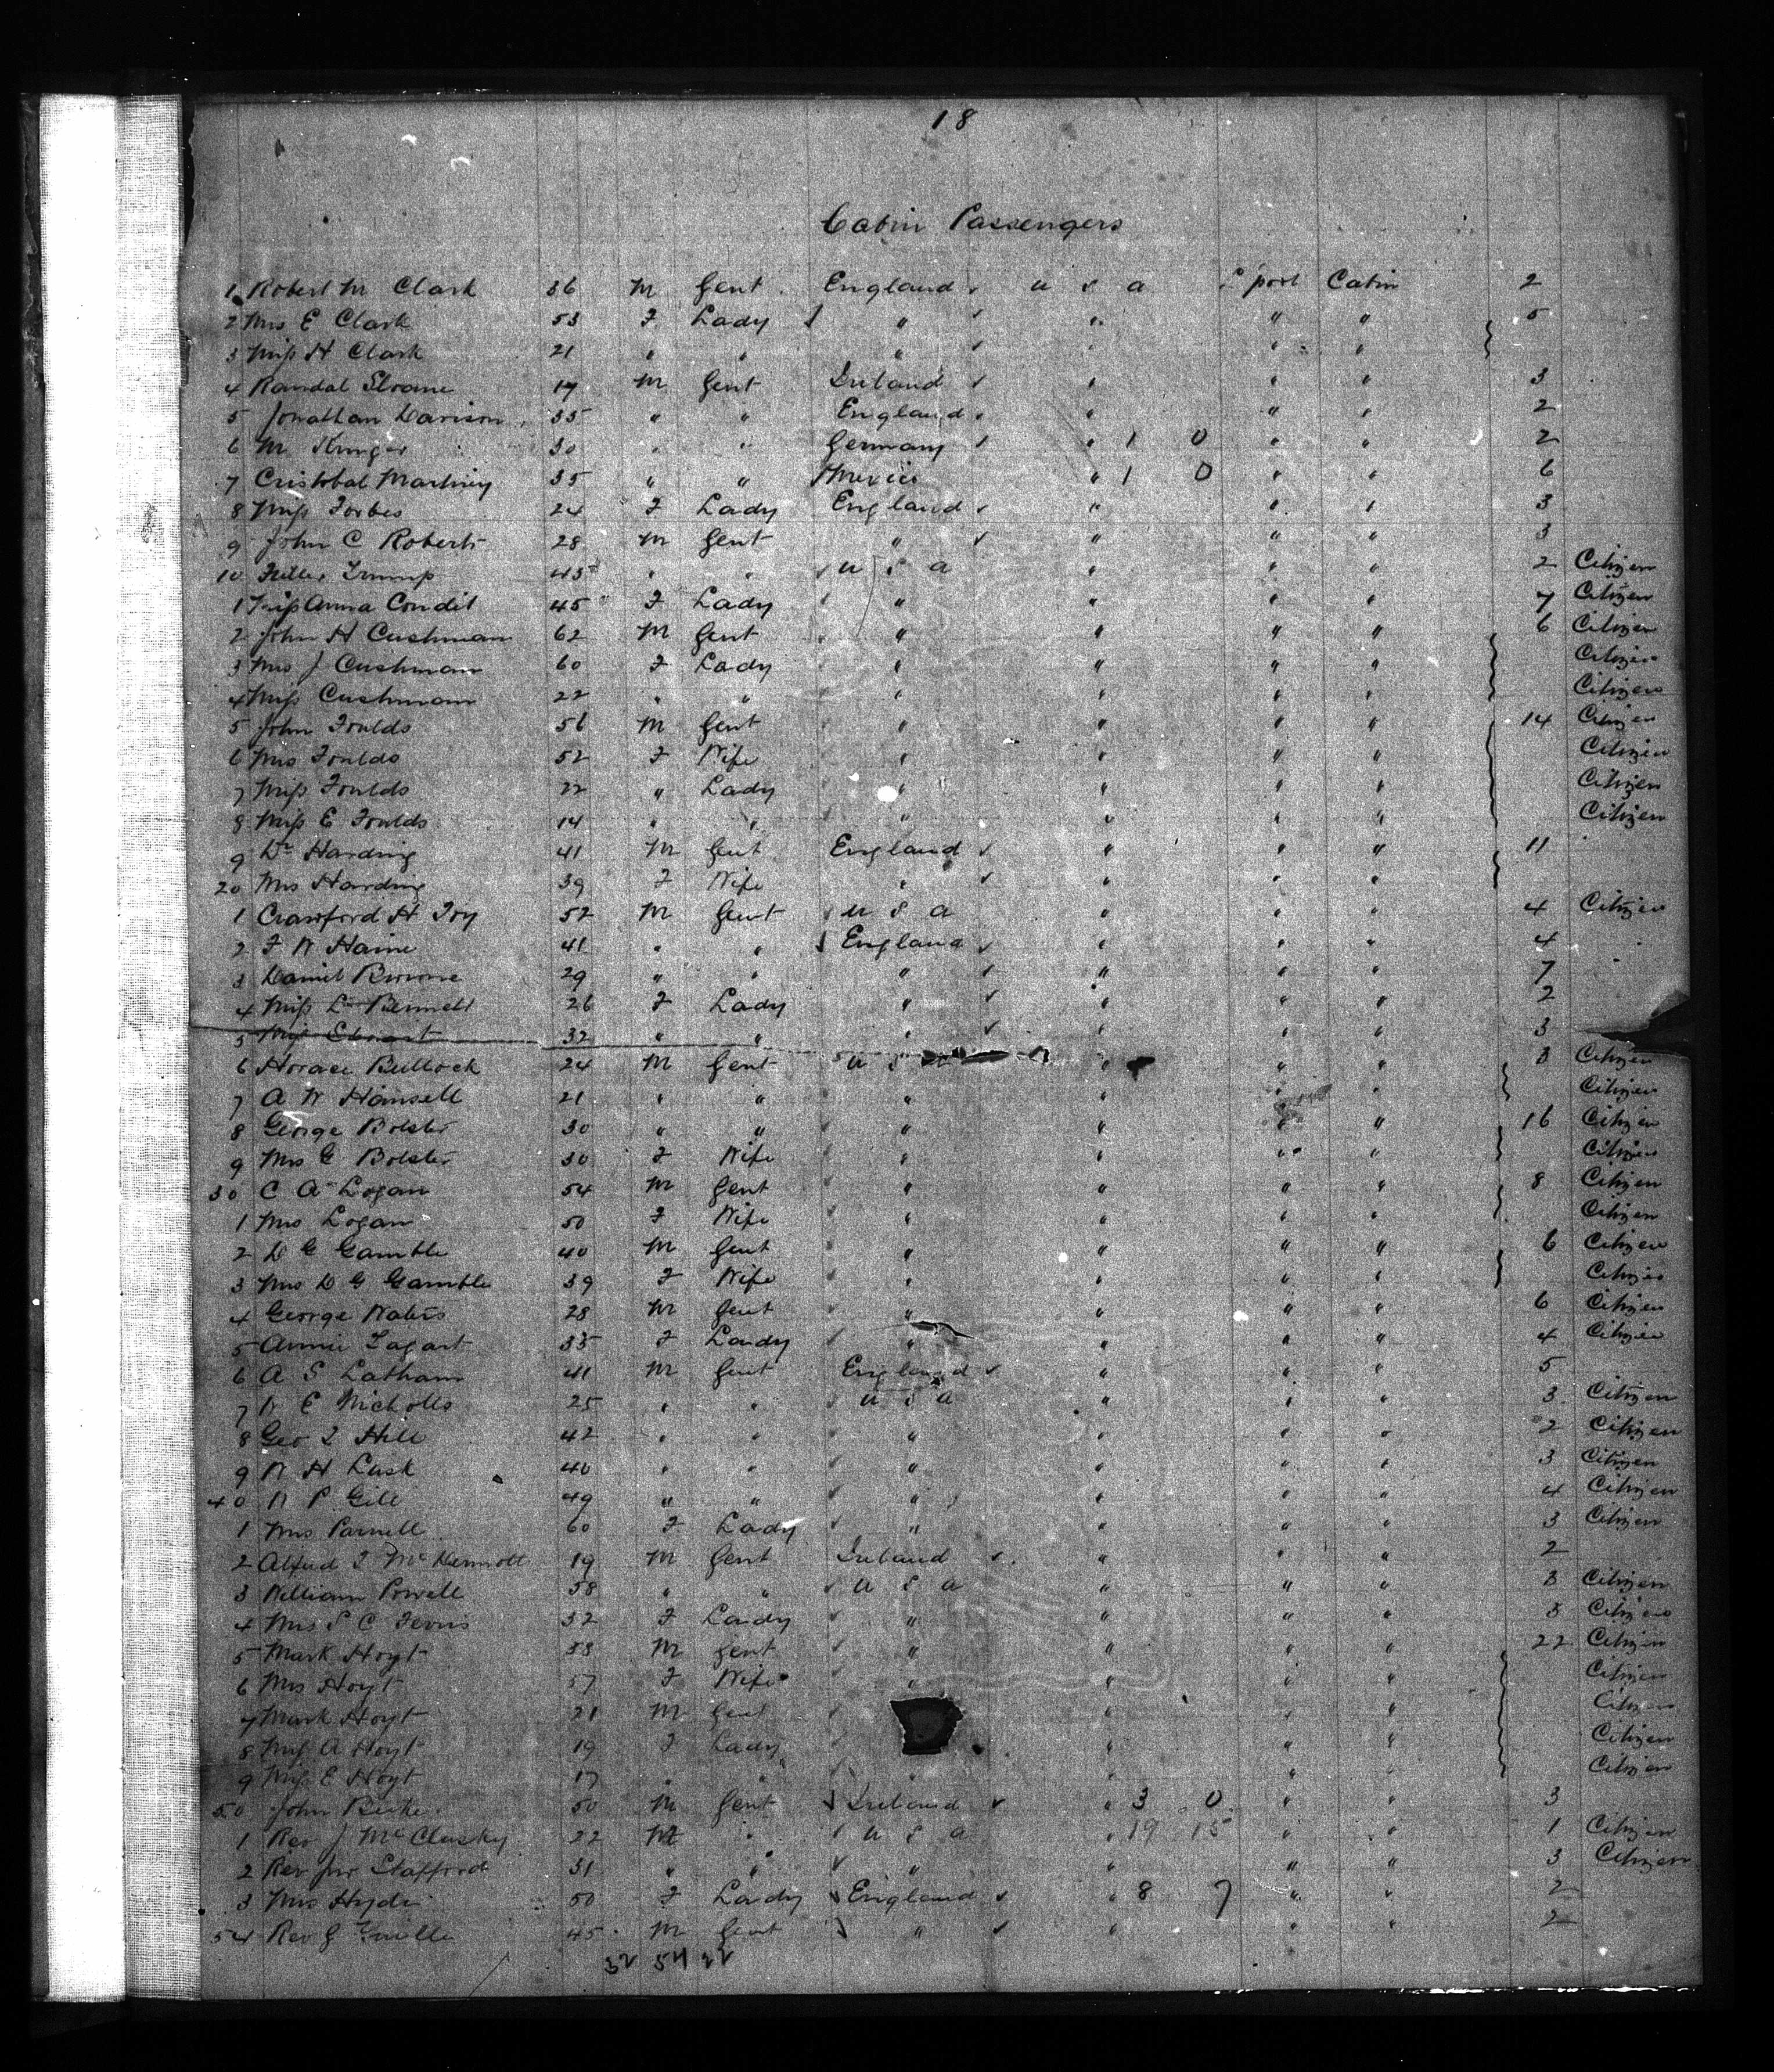 18
Cabin Passengers
1 Robert M Clark 36 M Gent England U S A L'pool Cabin 2
2 Mrs E Clark 53 F Lady " " " " 5
3 Miss H Clark 21 " " " " " "
4 Randal Sloane 19 M Gent Ireland " " " 3
5 Jonathan Davison 35 " " England " " " 2
6 M Kruger 30 " " Germany " 1 0 " " 2
7 Cristobal Martiney 35 " " Mexico " 1 0 " " 6
8 Miss Forbes 24 F Lady England " " " 3
9 John C Roberts 28 M Gent " " " " 3
10 45 " " U S A " " " 2 Citizen
1 Miss Anna Condit 45 F Lady " " " " 7 Citizen
2 John H Cushman 62 M Gent " " " " 6 Citizen
3 Mrs J Cushman 60 F Lady " " " " Citizen
4 Miss Cushman 22 " " " " " " Citizen
5 John Foulds 56 M Gent " " " " 14 Citizen
6 Mrs Foulds 52 F Wife " " " " Citizen
7 Miss Foulds 22 " Lady " " " " Citizen
8 Miss E Foulds 14 " " " " " " Citizen
9 Dr Harding 41 M Gent England " " " 11
20 Mrs Harding 39 F Wife " " " "
1 Crawford H Toy 52 M Gent U S A " " " 4 Citizen
2 F W Haine 41 " " England " " " 4
3 Daniel Browne 29 " " " " " " 7
4 Miss L Bennett 26 F Lady " " " " 2
5 Miss 32 " " " " " " 3
6 Horace Bullock 24 M Gent U S A " " " 3 Citizen
7 A W Hansell 21 " " " " " " Citizen
8 George Bolster 30 " " " " " " 16 Citizen
9 Mrs G Bolster 30 F Wife " " " " Citizen
30 C A Logan 54 M Gent " " " " 8 Citizen
1 Mrs Logan 50 F Wife " " " " Citizen
2 D G Gamble 40 M Gent " " " " 6 Citizen
3 Mrs D G Gamble 39 F Wife " " " " Citizen
4 George Waters 28 M Gent " " " " 6 Citizen
5 Annie Tagart 35 F Lady " " " " 4 Citizen
6 A S Latham 41 M Gent England " " " 5
7 W E Nicholls 25 " " U S A " " " 3 Citizen
8 Geo I Hill 42 " " " " " " 2 Citizen
9 W H Lusk 40 " " " " " " 3 Citizen
40 W P Gill 49 " " " " " " 4 Citizen
1 Mrs Parnell 60 F Lady " " " " 3 Citizen
2 Alfred J McDermott 19 M Gent Ireland " " " 2
3 William Powell 58 " " U S A " " " 3 Citizen
4 Mrs S C Tevis 32 F Lady " " " " 3 Citizen
5 Mark Hoyt 53 M Gent " " " " 22 Citizen
6 Mrs Hoyt 57 F Wife " " " " Citizen
7 Mark Hoyt 21 M Gent " " " Citizen
8 Miss A Hoyt 19 F Lady " " " Citizen
9 Miss E Hoyt 17 " " " " " " Citizen
50 John Burke 50 M Gent Ireland " 3 0 " " 3
1 Rev J McClusky 22 M " U S A " 19 15 " " 1 Citizen
2 Rev Jno Stafford 31 " " " " " 3 Citizen
3 Mrs Hyde 50 F Lady England " 8 7 " " 2
54 Rev G 45 M Gent " " " " 2
32 54 22